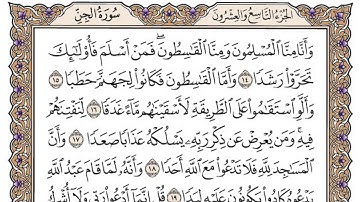 سُورَةُ الجِنِّ
الجُزْءُ التَّاسِعُ وَالعِشْرُونَ
وَأَنَّا مِنَّا ٱلْمُسْلِمُونَ وَمِنَّا ٱلْقَٰسِطُونَۖ فَمَنْ أَسْلَمَ فَأُو۟لَٰٓئِكَ
تَحَرَّوْا۟ رَشَدًا ١٤ وَأَمَّا ٱلْقَٰسِطُونَ فَكَانُوا۟ لِجَهَنَّمَ حَطَبًا ١٥
وَأَلَّوِ ٱسْتَقَٰمُوا۟ عَلَى ٱلطَّرِيقَةِ لَأَسْقَيْنَٰهُم مَّآءً غَدَقًا ١٦ لِّنَفْتِنَهُمْ
فِيهِۚ وَمَن يُعْرِضْ عَن ذِكْرِ رَبِّهِۦ يَسْلُكْهُ عَذَابًا صَعَدًا ١٧ وَأَنَّ
ٱلْمَسَٰجِدَ لِلَّهِ فَلَا تَدْعُوا۟ مَعَ ٱللَّهِ أَحَدًا ١٨ وَأَنَّهُۥ لَمَّا قَامَ عَبْدُ ٱللَّهِ
يَدْعُوهُ كَادُوا۟ يَكُونُونَ عَلَيْهِ لِبَدًا ١٩ قُلْ إِنَّمَآ أَدْعُوا۟ رَبِّى وَلَآ أُشْرِكُ